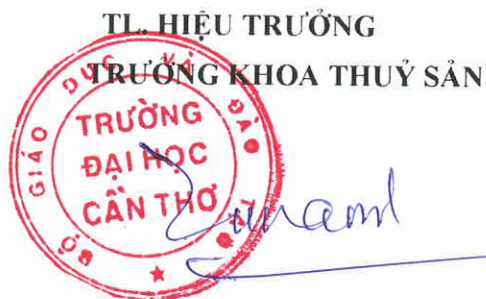 TL. HIỆU TRƯỞNG
TRƯỞNG KHOA THUỶ SẢN
BỘ GIÁO DỤC VÀ ĐÀO TẠO
TRƯỜNG
ĐẠI HỌC
CẦN THƠ